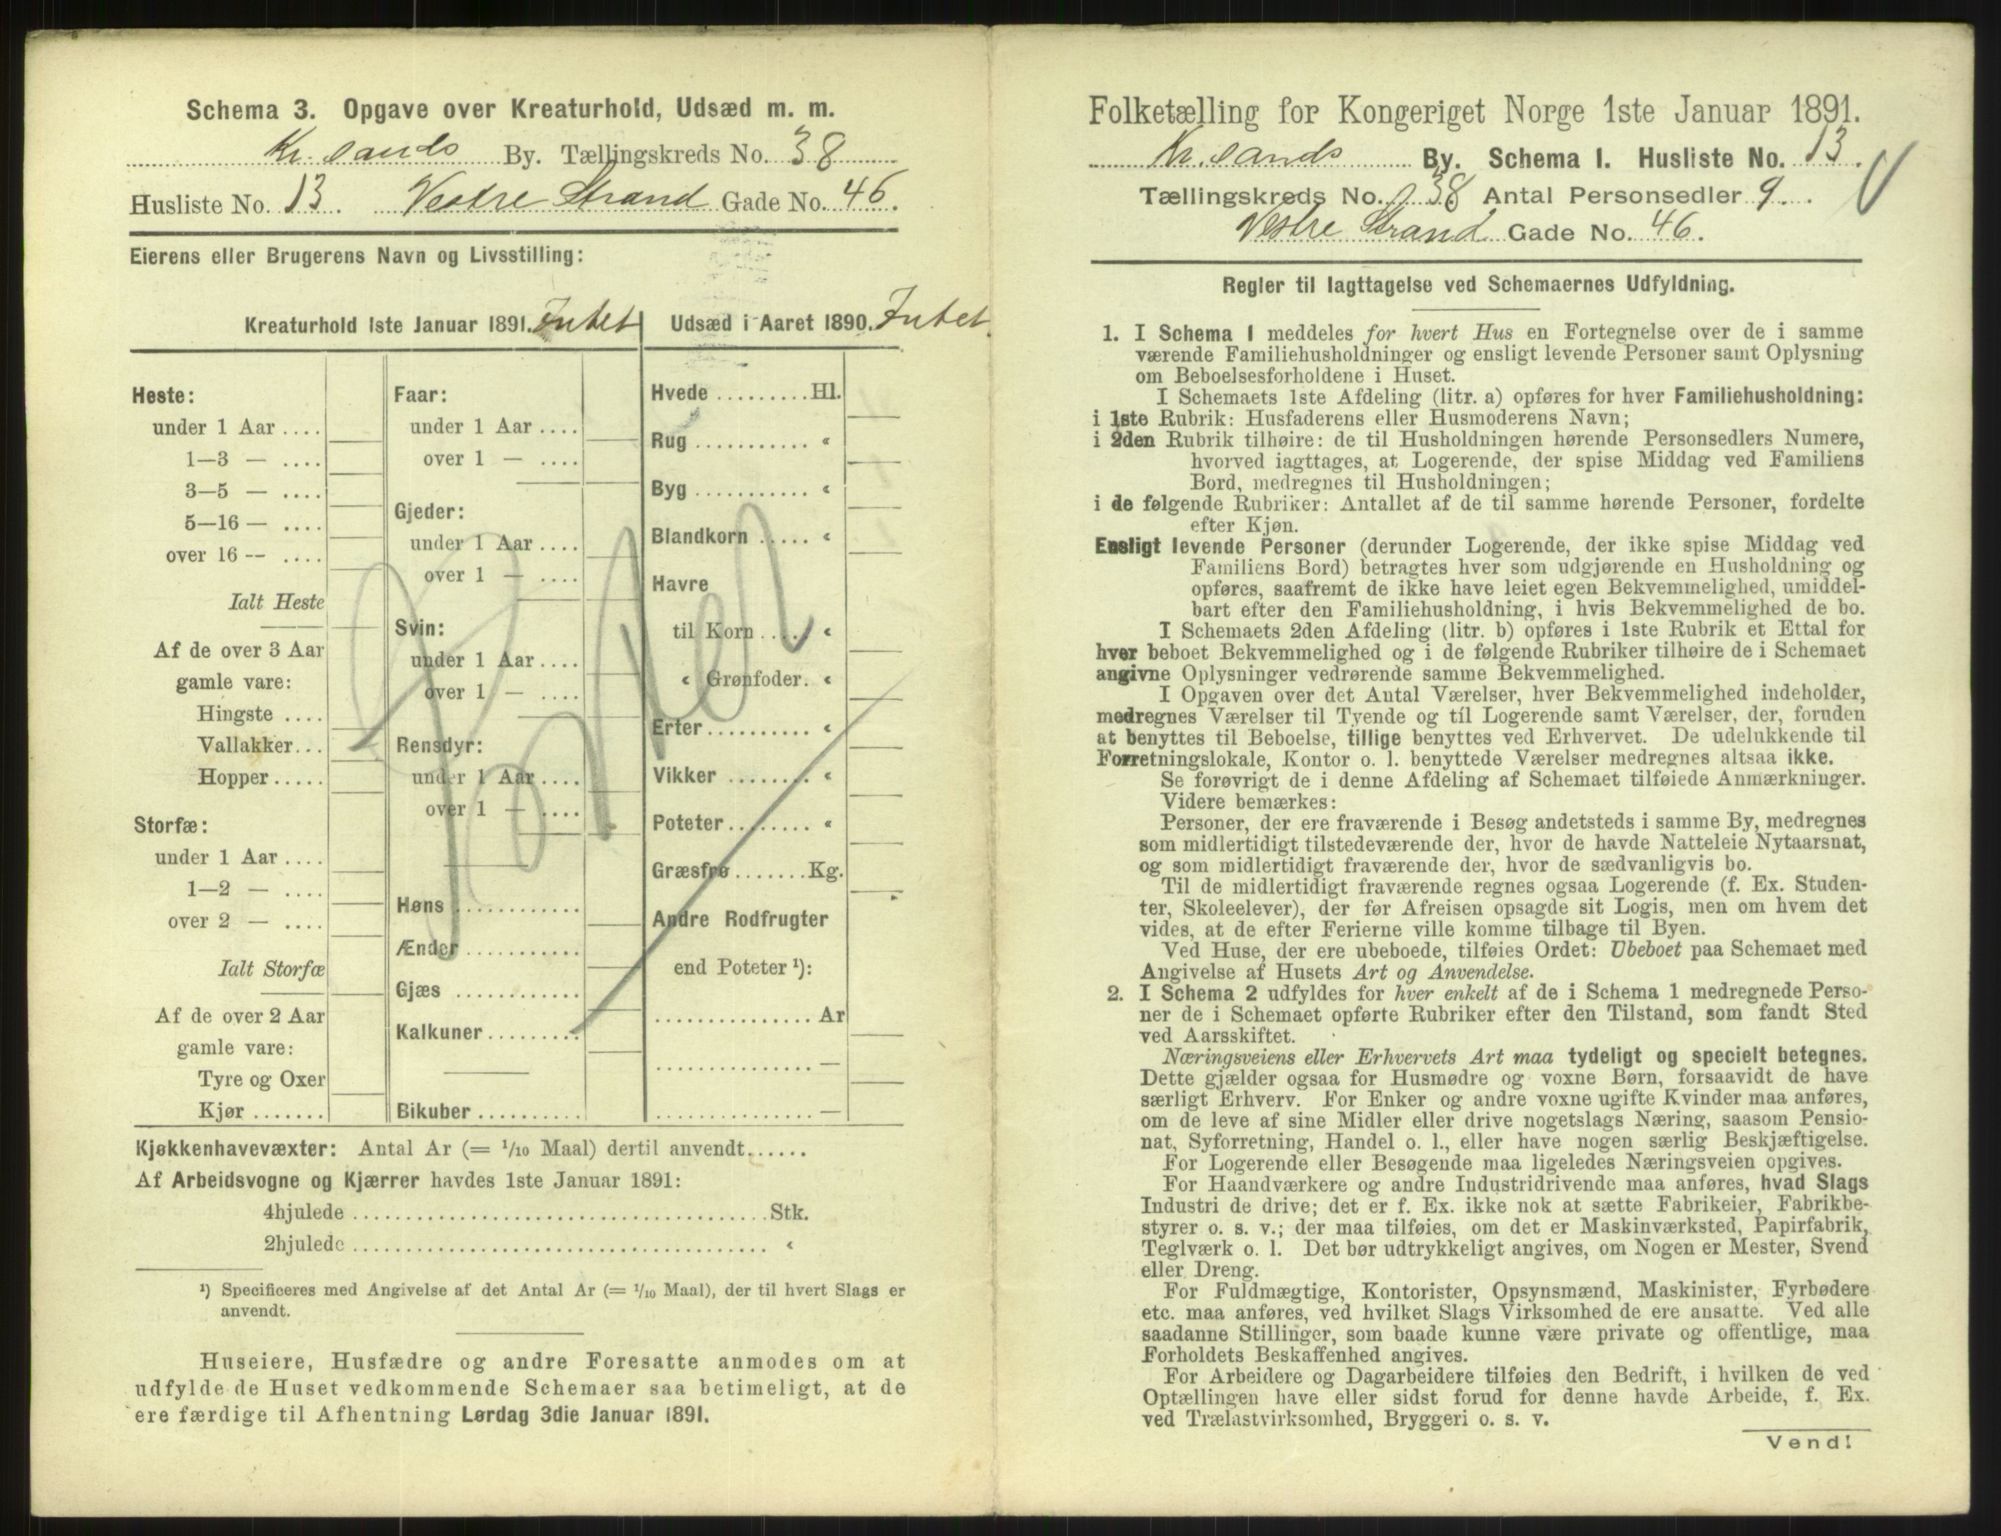 Schema 3. Opgave over Kreaturhold, Udsæd m. m.
Kr. sands By. Tællingskreds No. 38
Husliste No. 13. Vestre Strand Gade No. 46.
Eierens eller Brugerens Navn og Livsstilling:
Kreaturhold 1ste Januar 1891. Intet
Heste:
under 1 Aar ....
1—3 — ....
3—5 — ....
5—16 — ....
over 16 -- ....
Ialt Heste
Af de over 3 Aar
gamle vare:
Hingste ....
Vallakker...
Hopper .....
Storfæ:
under 1 Aar ....
1—2 — ....
over 2 — ....
Ialt Storfæ
Af de over 2 Aar
gamle vare:
Tyre og Oxer
Kjør .......
Faar:
under 1 Aar ....
over 1 — ....
Gjeder:
under 1 Aar ....
over 1 — ....
Svin:
under 1 Aar ....
over 1 — ....
Rensdyr:
under 1 Aar ....
over 1 — ....
Høns ............
Ænder ...........
Gjæs ............
Kalkuner .........
Bikuber ..........
Udsæd i Aaret 1890. Intet.
Hvede .........Hl.
Rug ........... «
Byg ........... «
Blandkorn ..... «
Havre
til Korn ..... «
« Grønfoder. «
Erter .......... «
Vikker ........ «
Poteter ........ «
Græsfrø .......Kg.
Andre Rodfrugter
end Poteter ¹):
............... Ar
............... —
............... —
Kjøkkenhavevæxter: Antal Ar (= 1/10 Maal) dertil anvendt......
Af Arbeidsvogne og Kjærrer havdes 1ste Januar 1891:
4hjulede ......................................Stk.
2hjulede ...................................... «
¹) Specificeres med Angivelse af det Antal Ar (= 1/10 Maal), der til hvert Slags er
anvendt.
Huseiere, Husfædre og andre Foresatte anmodes om at
udfylde de Huset vedkommende Schemaer saa betimeligt, at de
ere færdige til Afhentning Lørdag 3die Januar 1891.
Folketælling for Kongeriget Norge 1ste Januar 1891.
Kr. sands By. Schema 1. Husliste No. 13.
Tællingskreds No. 38 Antal Personsedler 9.
Vestre Strand Gade No. 46.
Regler til Iagttagelse ved Schemaernes Udfyldning.
1. I Schema 1 meddeles for hvert Hus en Fortegnelse over de i samme
værende Familiehusholdninger og ensligt levende Personer samt Oplysning
om Beboelsesforholdene i Huset.
I Schemaets 1ste Afdeling (litr. a) opføres for hver Familiehusholdning:
i 1ste Rubrik: Husfaderens eller Husmoderens Navn;
i 2den Rubrik tilhøire: de til Husholdningen hørende Personsedlers Numere,
hvorved iagttages, at Logerende, der spise Middag ved Familiens
Bord, medregnes til Husholdningen;
i de følgende Rubriker: Antallet af de til samme hørende Personer, fordelte
efter Kjøn.
Ensligt levende Personer (derunder Logerende, der ikke spise Middag ved
Familiens Bord) betragtes hver som udgjørende en Husholdning og
opføres, saafremt de ikke have leiet egen Bekvemmelighed, umiddel-
bart efter den Familiehusholdning, i hvis Bekvemmelighed de bo.
I Schemaets 2den Afdeling (litr. b) opføres i 1ste Rubrik et Ettal for
hver beboet Bekvemmelighed og i de følgende Rubriker tilhøire de i Schemaet
angivne Oplysninger vedrørende samme Bekvemmelighed.
I Opgaven over det Antal Værelser, hver Bekvemmelighed indeholder,
medregnes Værelser til Tyende og til Logerende samt Værelser, der, foruden
at benyttes til Beboelse, tillige benyttes ved Erhvervet. De udelukkende til
Forretningslokale, Kontor o. l. benyttede Værelser medregnes altsaa ikke.
Se forøvrigt de i denne Afdeling af Schemaet tilføiede Anmærkninger.
Videre bemærkes:
Personer, der ere fraværende i Besøg andetsteds i samme By, medregnes
som midlertidigt tilstedeværende der, hvor de havde Natteleie Nytaarsnat,
og som midlertidigt fraværende der, hvor de sædvanligvis bo.
Til de midlertidigt fraværende regnes ogsaa Logerende (f. Ex. Studen-
ter, Skoleelever), der før Afreisen opsagde sit Logis, men om hvem det
vides, at de efter Ferierne ville komme tilbage til Byen.
Ved Huse, der ere ubeboede, tilføies Ordet: Ubeboet paa Schemaet med
Angivelse af Husets Art og Anvendelse.
2. I Schema 2 udfyldes for hver enkelt af de i Schema 1 medregnede Perso-
ner de i Schemaet opførte Rubriker efter den Tilstand, som fandt Sted
ved Aarsskiftet.
Næringsveiens eller Erhvervets Art maa tydeligt og specielt betegnes.
Dette gjælder ogsaa for Husmødre og voxne Børn, forsaavidt de have
særligt Erhverv. For Enker og andre voxne ugifte Kvinder maa anføres,
om de leve af sine Midler eller drive nogetslags Næring, saasom Pensio-
nat, Syforretning, Handel o. l., eller have nogen særlig Beskjæftigelse.
For Logerende eller Besøgende maa ligeledes Næringsveien opgives.
For Haandværkere og andre Industridrivende maa anføres, hvad Slags
Industri de drive; det er f. Ex. ikke nok at sætte Fabrikeier, Fabrikbe-
styrer o. s. v.; der maa tilføies, om det er Maskinværksted, Papirfabrik,
Teglværk o. l. Det bør udtrykkeligt angives, om Nogen er Mester, Svend
eller Dreng.
For Fuldmægtige, Kontorister, Opsynsmænd, Maskinister, Fyrbødere
etc. maa anføres, ved hvilket Slags Virksomhed de ere ansatte. Ved alle
saadanne Stillinger, som baade kunne være private og offentlige, maa
Forholdets Beskaffenhed angives.
For Arbeidere og Dagarbeidere tilføies den Bedrift, i hvilken de ved
Optællingen have eller sidst forud for denne havde Arbeide, f. Ex.
ved Trælastvirksomhed, Bryggeri o. s. v.
Vend!